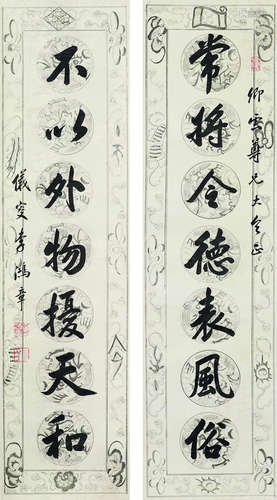 卿雲尊兄大人正
常將令德表風俗
不以外物擾天和
儀叟李鴻章